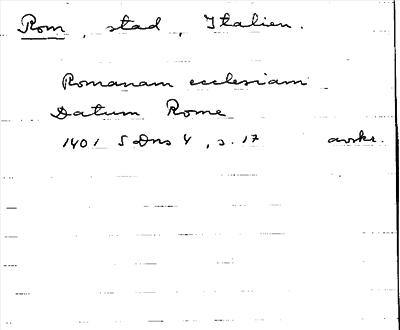 Rom, stad, Italien.
Romanam ecclesiam
Datum Rome
1401 SDns 4, s. 17 avskr.